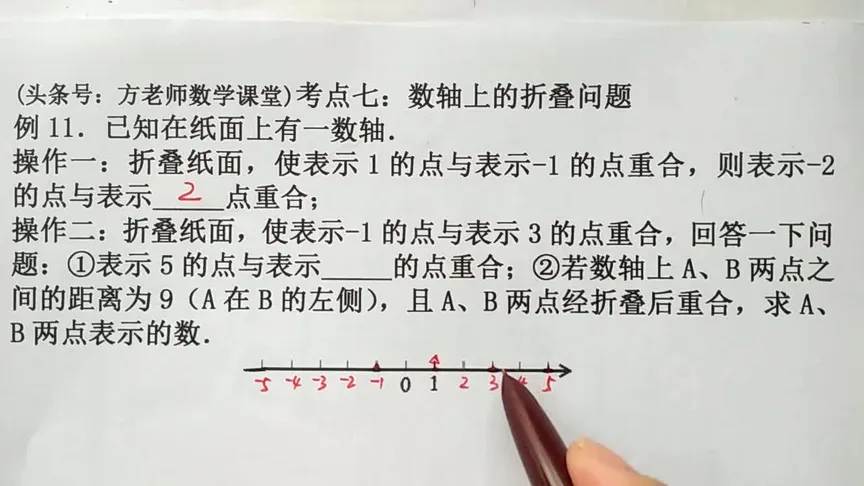 (头条号：方老师数学课堂)考点七：数轴上的折叠问题
例 11．已知在纸面上有一数轴．
操作一：折叠纸面，使表示 1 的点与表示-1 的点重合，则表示-2
的点与表示 2 点重合；
操作二：折叠纸面，使表示-1 的点与表示 3 的点重合，回答一下问
题：①表示 5 的点与表示_____的点重合；②若数轴上 A、B 两点之
间的距离为 9（A 在 B 的左侧），且 A、B 两点经折叠后重合，求 A、
B 两点表示的数．
-5 -4 -3 -2 -1 0 1 2 3 4 5